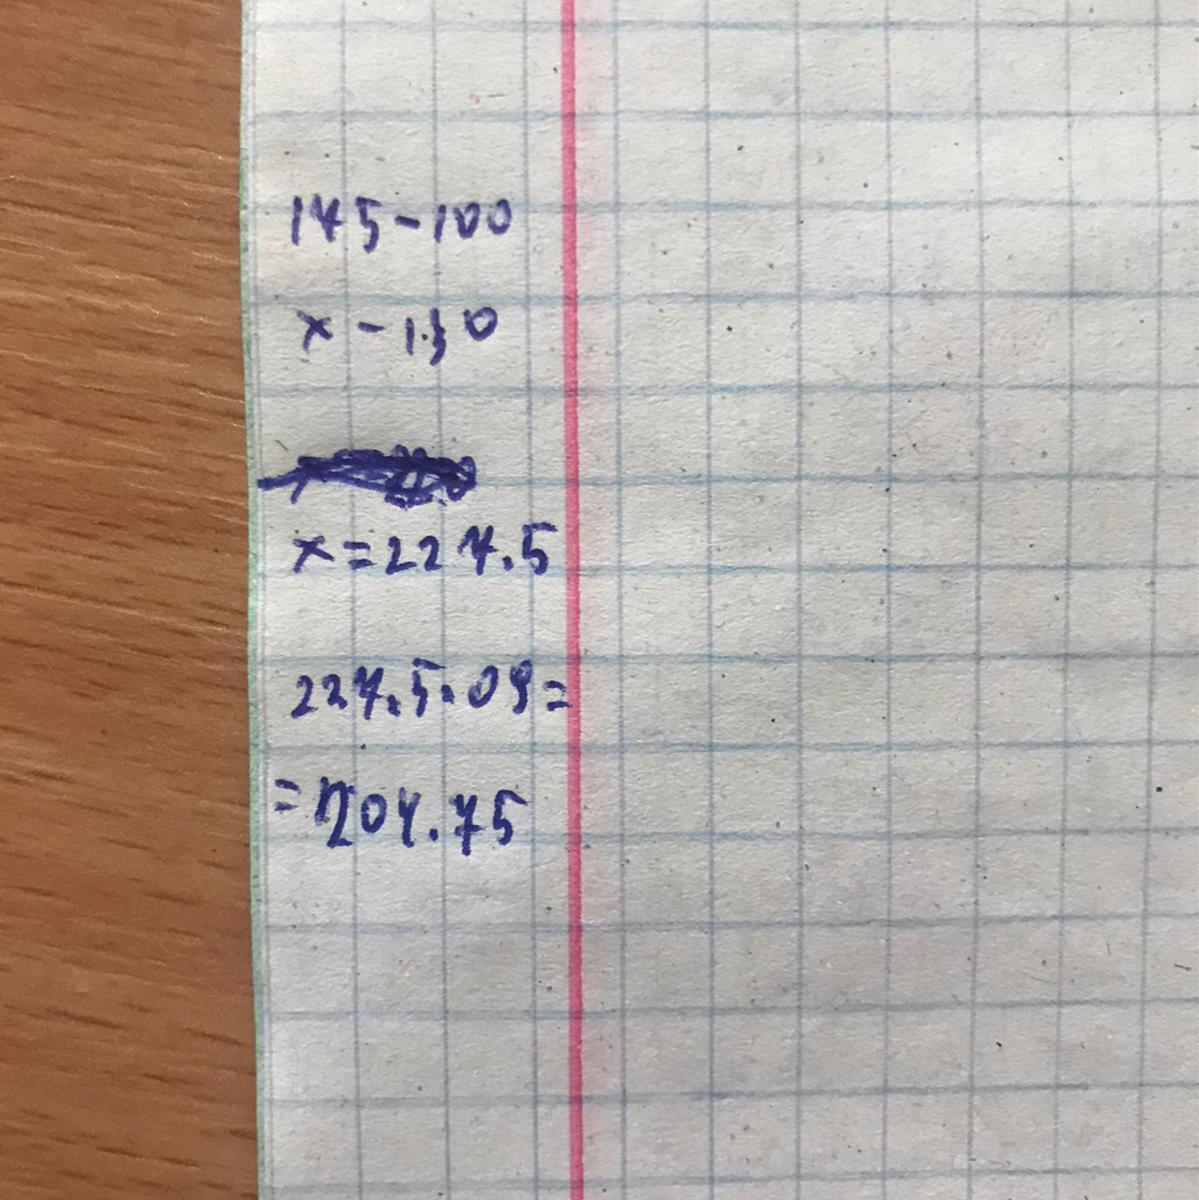 175-100
x-130
x=227.5
227.5·09=
=204.75